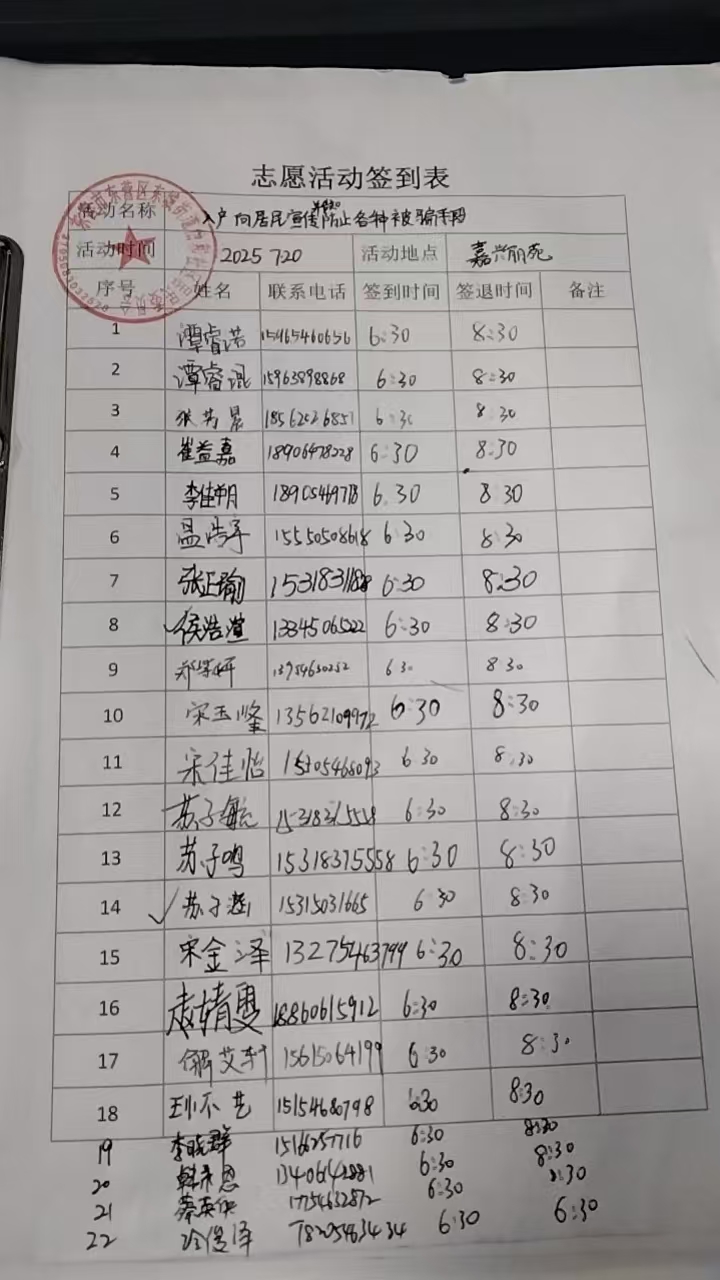 志愿活动签到表
活动名称 入户向居民宣传防止各种被骗手段
活动时间 2025 7.20 活动地点 嘉兴丽苑
序号 姓名 联系电话 签到时间 签退时间 备注
1 谭睿诺 15965460656 6:30 8:30
2 谭睿混 15963898868 6:30 8:30
3 18562526851 6:30 8:30
4 崔益嘉 18906478228 6:30 8:30
5 李佳玥 6.30 8:30
6 温浩宇 15550508618 6:30 8:30
7 张正瑜 6:30 8:30
8 侯浩萱 13345065222 6:30 8:30
9 13954650252 6:30 8:30
10 宋玉峰 13562109972 6:30 8:30
11 宋佳怡 15305468093 6:30 8:30
12 苏子毓 6:30 8:30
13 苏子鸣 15318375558 6:30 8:30
14 苏子涵 15315031665 6:30 8:30
15 宋金泽 13275463799 6:30 8:30
16 赵婧雯 18860615912 6:30 8:30
17 解艾轩 15615064199 6:30 8:30
18 15154680798 6:30 8:30
19 李晓群 15166257716 6:30 8:30
20 韩承恩 13406142881 6:30 8:30
21 17754632872 6:30 8:30
22 冷俊泽 18205463434 6:30 6:30